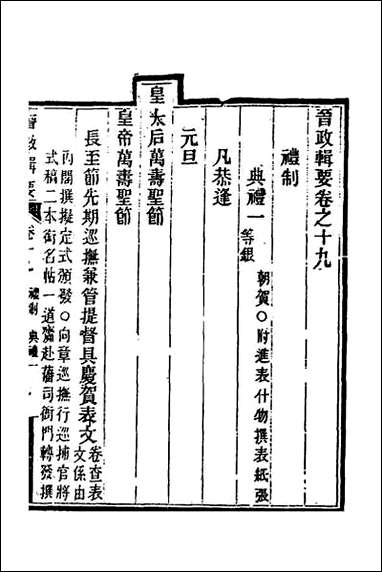 晉政輯要卷之十九
禮制
典禮一 朝賀〇附進表什物撰表紙張
等銀
凡恭逢
元旦
皇太后萬壽聖節
皇帝萬壽聖節
長至節先期巡撫兼管提督具慶賀表文 卷查表
文係由
內閣撰擬定式頒發〇向章巡撫行巡捕官將
式稿二本銜名帖一道齎赴藩司衙門轉發撰
晉政輯要 卷十九 禮制 典禮一